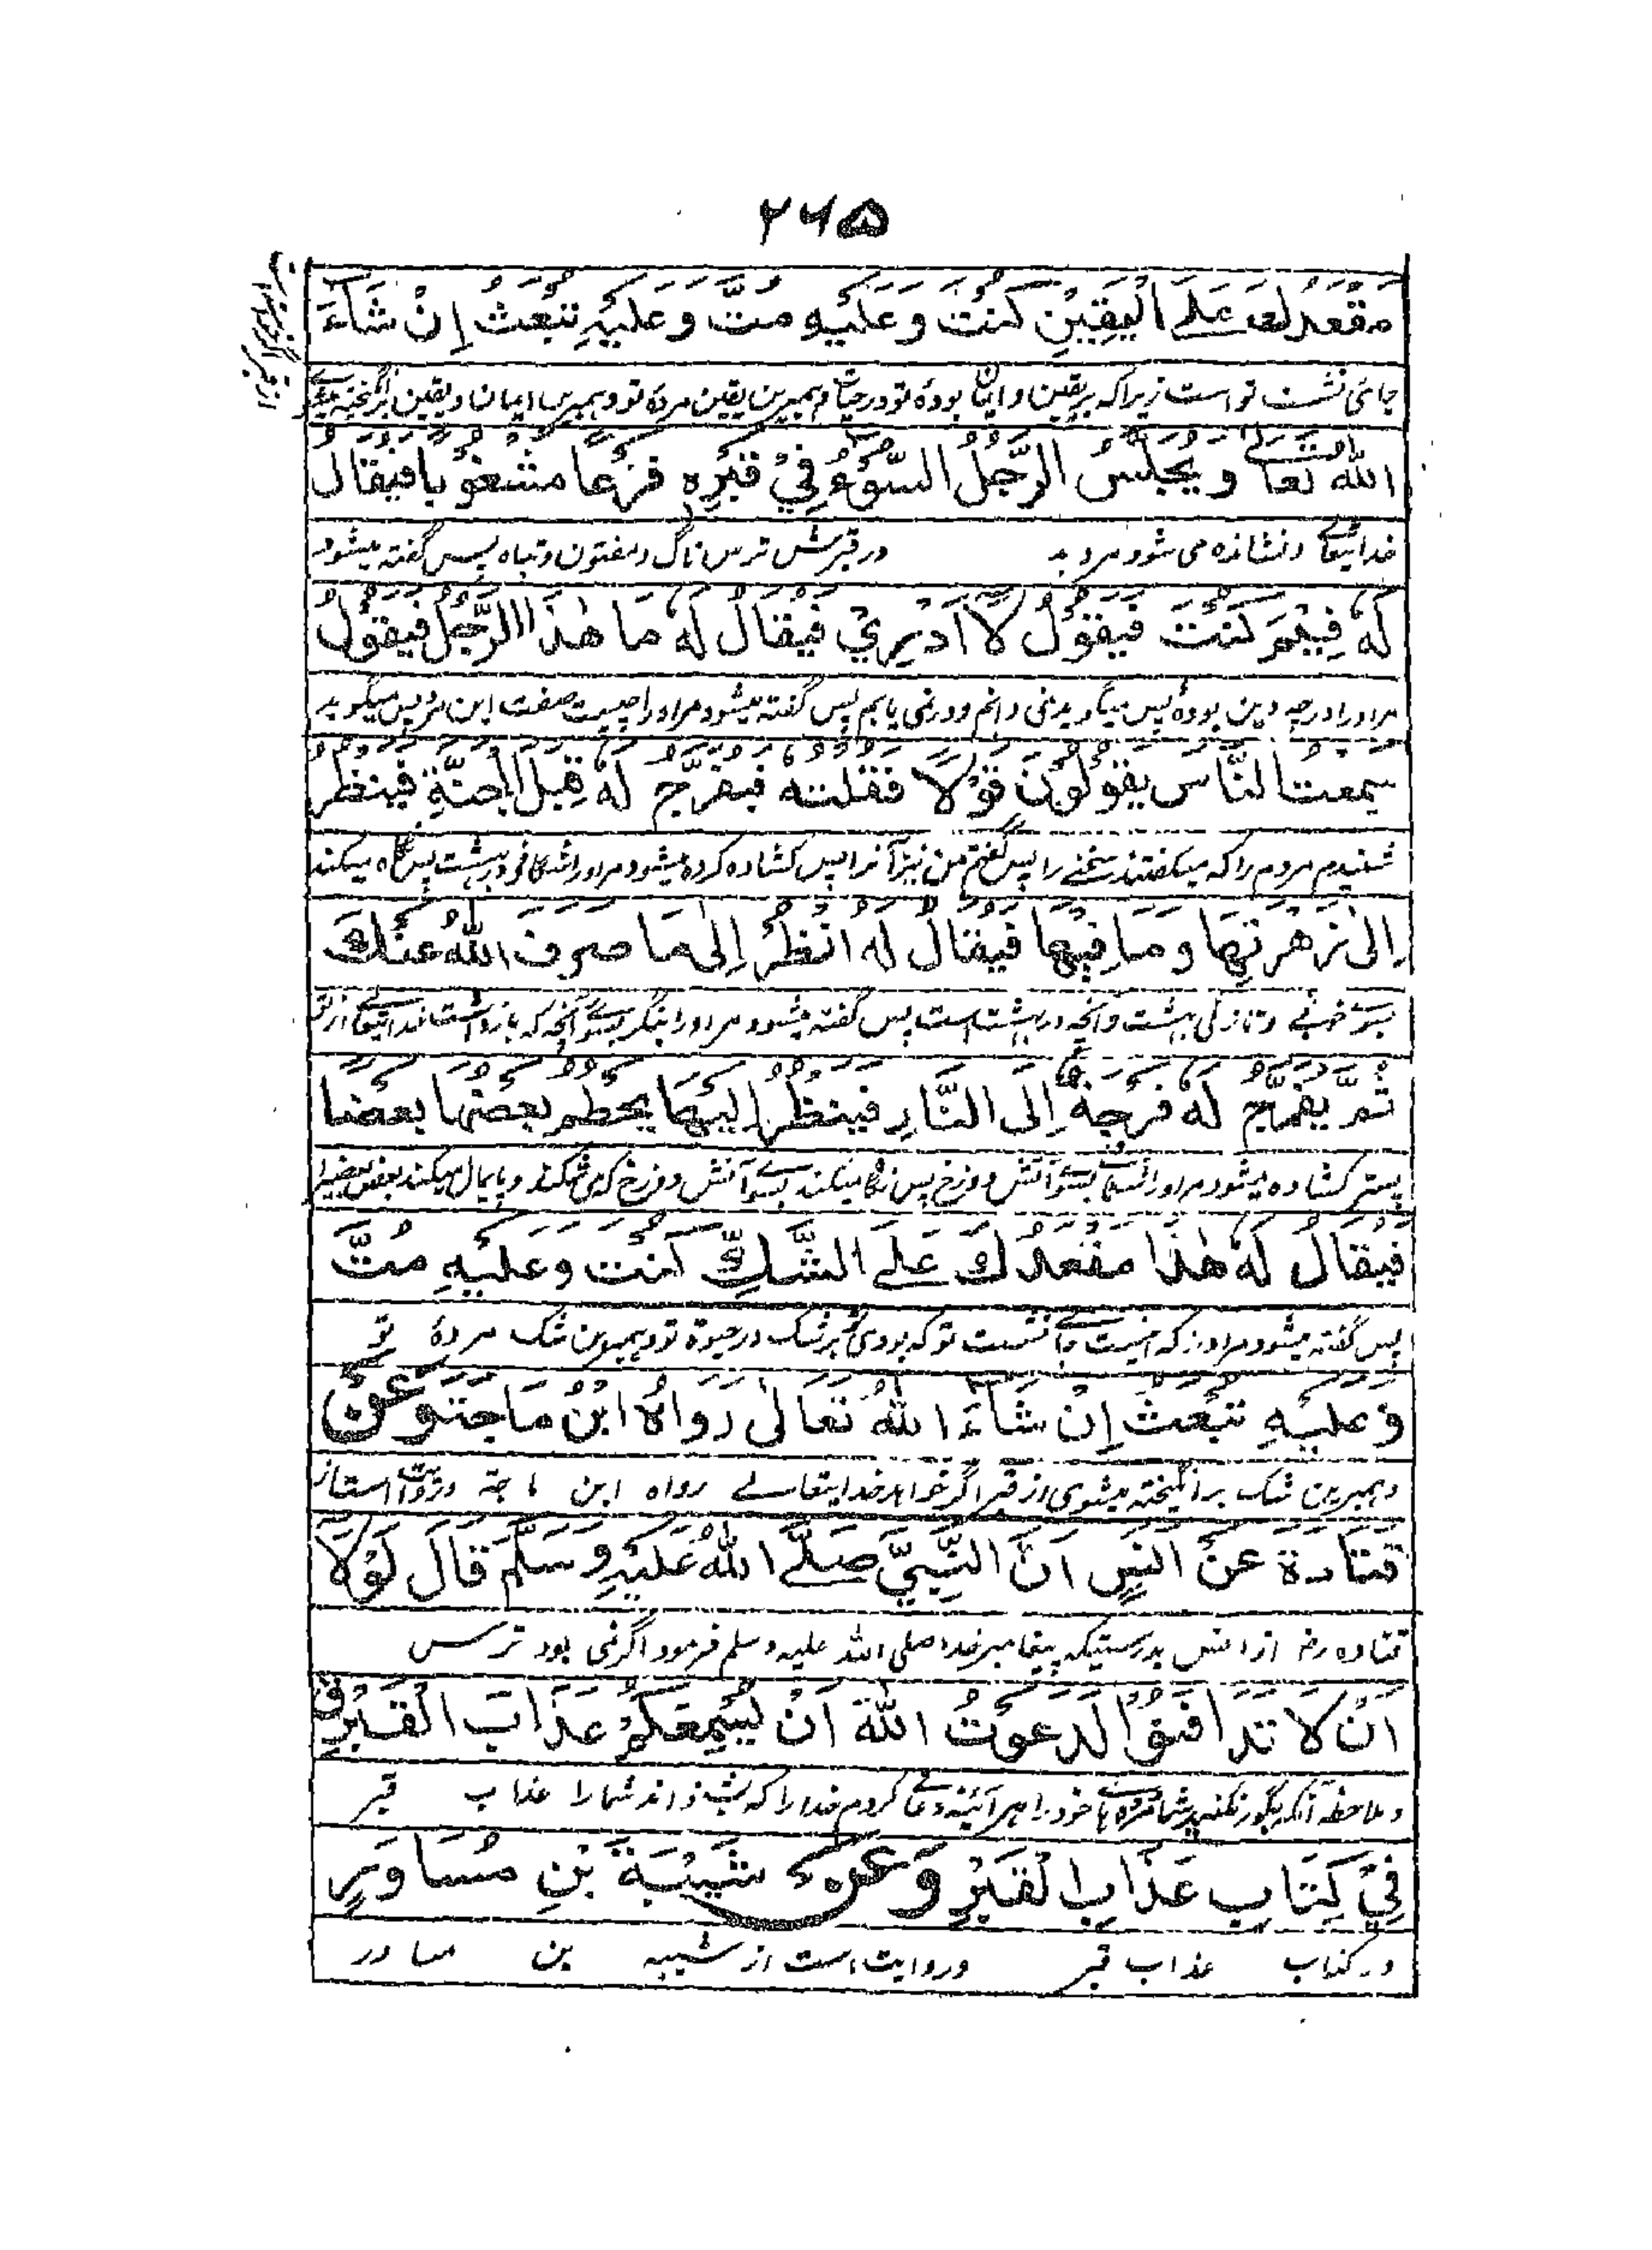 ۲۶۵
مَقْعَدُكَ عَلَى الْيَقِيْنِ كُنْتَ وَعَلَيْهِ مُتَّ وَعَلَيْهِ تُبْعَثُ اِنْ شَآءَ
جای نشست تو است زیراکه بریقین و بوده تو در و همبرین یقین مردهٔ تو و بهمیرین ایمان و یقین
اللّٰهُ تَعَالٰى وَيُجْلَسُ الرَّجُلُ السُّوْءُ فِيْ قَبْرِهِ فَزِعًا مَشْغُوْبًا فَيُقَالُ
خدایتعالے و نشانده می شود مرد بد در قبرش ترس ناک و مفتون و تباه پس گفته میشود
لَهٗ فِيْمَ كُنْتَ فَيَقُوْلُ لَا اَدْرِيْ فَيُقَالُ لَهٗ مَا هٰذَا الرَّجُلُ فَيَقُوْلُ
مر اورا در چه دین بودهٔ پس میگوید نمی دانم و در نمی یابم پس گفته میشود مر اورا چیست صفت این مرد پس میگوید
سَمِعْتُ النَّاسَ يَقُوْلُوْنَ قَوْلًا فَقُلْتُهٗ فَيُفَرَّجُ لَهٗ قِبَلَ الْجَنَّةِ فَيَنْظُرُ
شنیدم مردم را که میگفتند سخنے را پس گفتم من نیز آنرا پس کشاده کرده میشود مر اورا شگافی در بهشت پس نگاه میکند
اِلٰى زَهْرَتِهَا وَمَا فِيْهَا فَيُقَالُ لَهٗ انْظُرْ اِلٰى مَا صَرَفَ اللّٰهُ عَنْكَ
بسوے خوبی و تازگی بهشت و آنچه در بهشت است پس گفته میشود مر اورا بنگر بسوے آنچه که بازداشت خدایتعالے از تو
ثُمَّ يُفَرَّجُ لَهٗ فُرْجَةٌ اِلَى النَّارِ فَيَنْظُرُ اِلَيْهَا يَحْطِمُ بَعْضُهَا بَعْضًا
پستر کشاده میشود مر اورا بسوے آتش دوزخ پس نگاه میکند بسوے آتش دوزخ که می شکند و پایمال میکند بعض بعض را
فَيُقَالُ لَهٗ هٰذَا مَقْعَدُكَ عَلَى الشَّكِّ كُنْتَ وَعَلَيْهِ مُتَّ
پس گفته میشود مر اورا که اینست جاے نشست تو که بودی بر شک در حیوة تو و بهمبرین شک مردهٔ تو
وَعَلَيْهِ تُبْعَثُ اِنْ شَآءَ اللّٰهُ تَعَالٰى رَوَاهُ ابْنُ مَاجَةَ وَعَنْ
و بهمبرین شک برانگیخته میشوی از قبر اگر خواهد خدایتعالے رواه ابن ماجة و روایت است از
قَتَادَةَ عَنْ اَنَسٍ اَنَّ النَّبِيَّ صَلَّى اللّٰهُ عَلَيْهِ وَسَلَّمَ قَالَ لَوْلَا
قتاده رض از انس بدرستیکه پیغامبر خدا صلی الله علیه وسلم فرمود اگر نمی بود ترس
اَنْ لَا تَدَافَنُوْا لَدَعَوْتُ اللّٰهَ اَنْ يُسْمِعَكُمْ عَذَابَ الْقَبْرِ
و ملاحظه آنکه بگور نکنید شما مرده ها خود را هر آئینه دعا کردم خدا را که بشنواند شما را عذاب قبر
فِيْ كِتَابِ عَذَابِ الْقَبْرِ وَعَنْ شَيْبَةَ بْنِ مُسَاوِرٍ
در کتاب عذاب قبر و روایت است از شیبه بن مساور